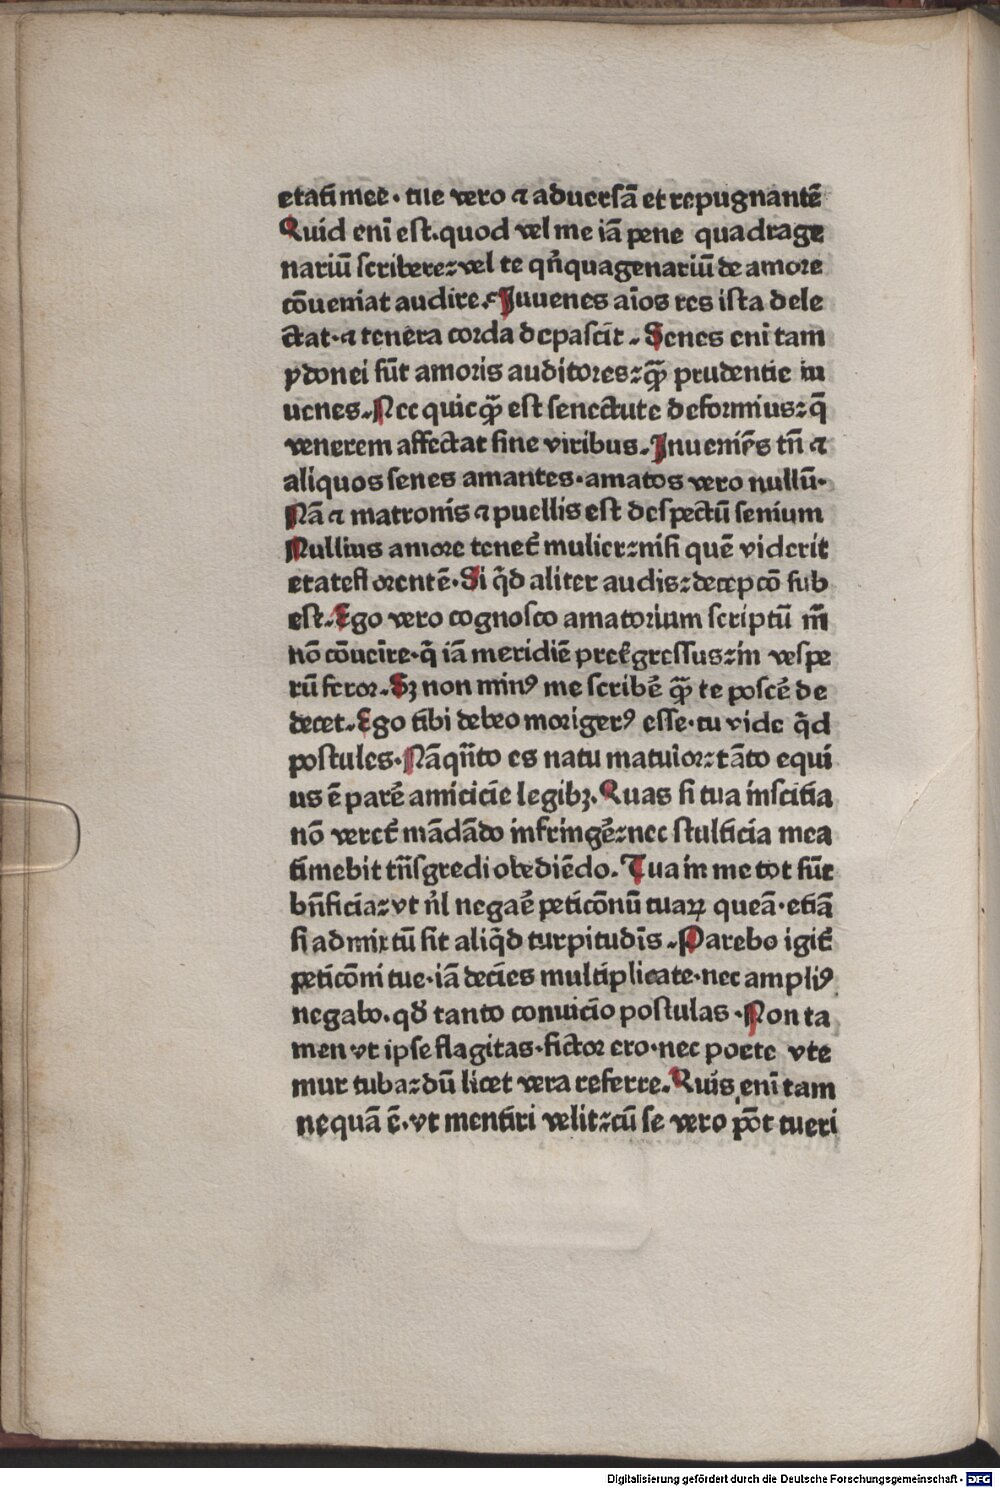 etati mee · tue vero ⁊ aduersā et repugnantē
Quid enī est. quod vel me iā pene quadrage
nariū scribere: vel te qn̄quagenariū de amore
cōueniat audire. Iuuenes aīos res ista dele
ctat · ⁊ tenera corda depascit̄. Senes enī tam
ydonei sūt amoris auditores: qꝫ̄ prudentie iu
uenes. Nec quicqꝫ̄ est senectute deformius: q̄
venerem affectat sine viribus. Inuenies tn̄ ⁊
aliquos senes amantes · amatos vero nullū ·
Nā ⁊ matronis ⁊ puellis est despectū senium
Nullius amore tenet̄ mulier: nisi quē viderit
etatefl orentē · Si q̄d aliter audis: decepcō sub
est. Ego vero cognosco amatorium scriptū m̄
nō cōueīre · q̄ iā meridiē pret̄gressus: in vespe
rū feror. Sꝫ non minꝰ me scribē qꝫ̄ te poscē de
decet. Ego tibi debeo morigerꝰ esse · tu vide q̄d
postules · Nā qn̄to es natu matuior: tāto equi
us ē parē amicicie legibꝫ. Quas si tua inscitia
nō veret̄ mādādo infringē: nec stulticia mea
timebit trn̄sgredi obediēdo. Tua in me tot sūt
bn̄ficia: vt nl̄ negaē peticōnū tuaꝝ queā · etiā
si admixtū sit aliq̄d turpitudīs. Parebo igit̄
peticōni tue · iā decies multiplicate · nec ampliꝰ
negabo. qd̄ tanto conuicio postulas · Non ta
men vt ipse flagitas · fictor ero · nec poete vte
mur tuba: dū licet vera referre. Quis enī tam
nequā ē · vt mentiri velit: cū se vero pōt tueri
Digitalisierung gefördert durch die Deutsche Forschungsgemeinschaft - DFG